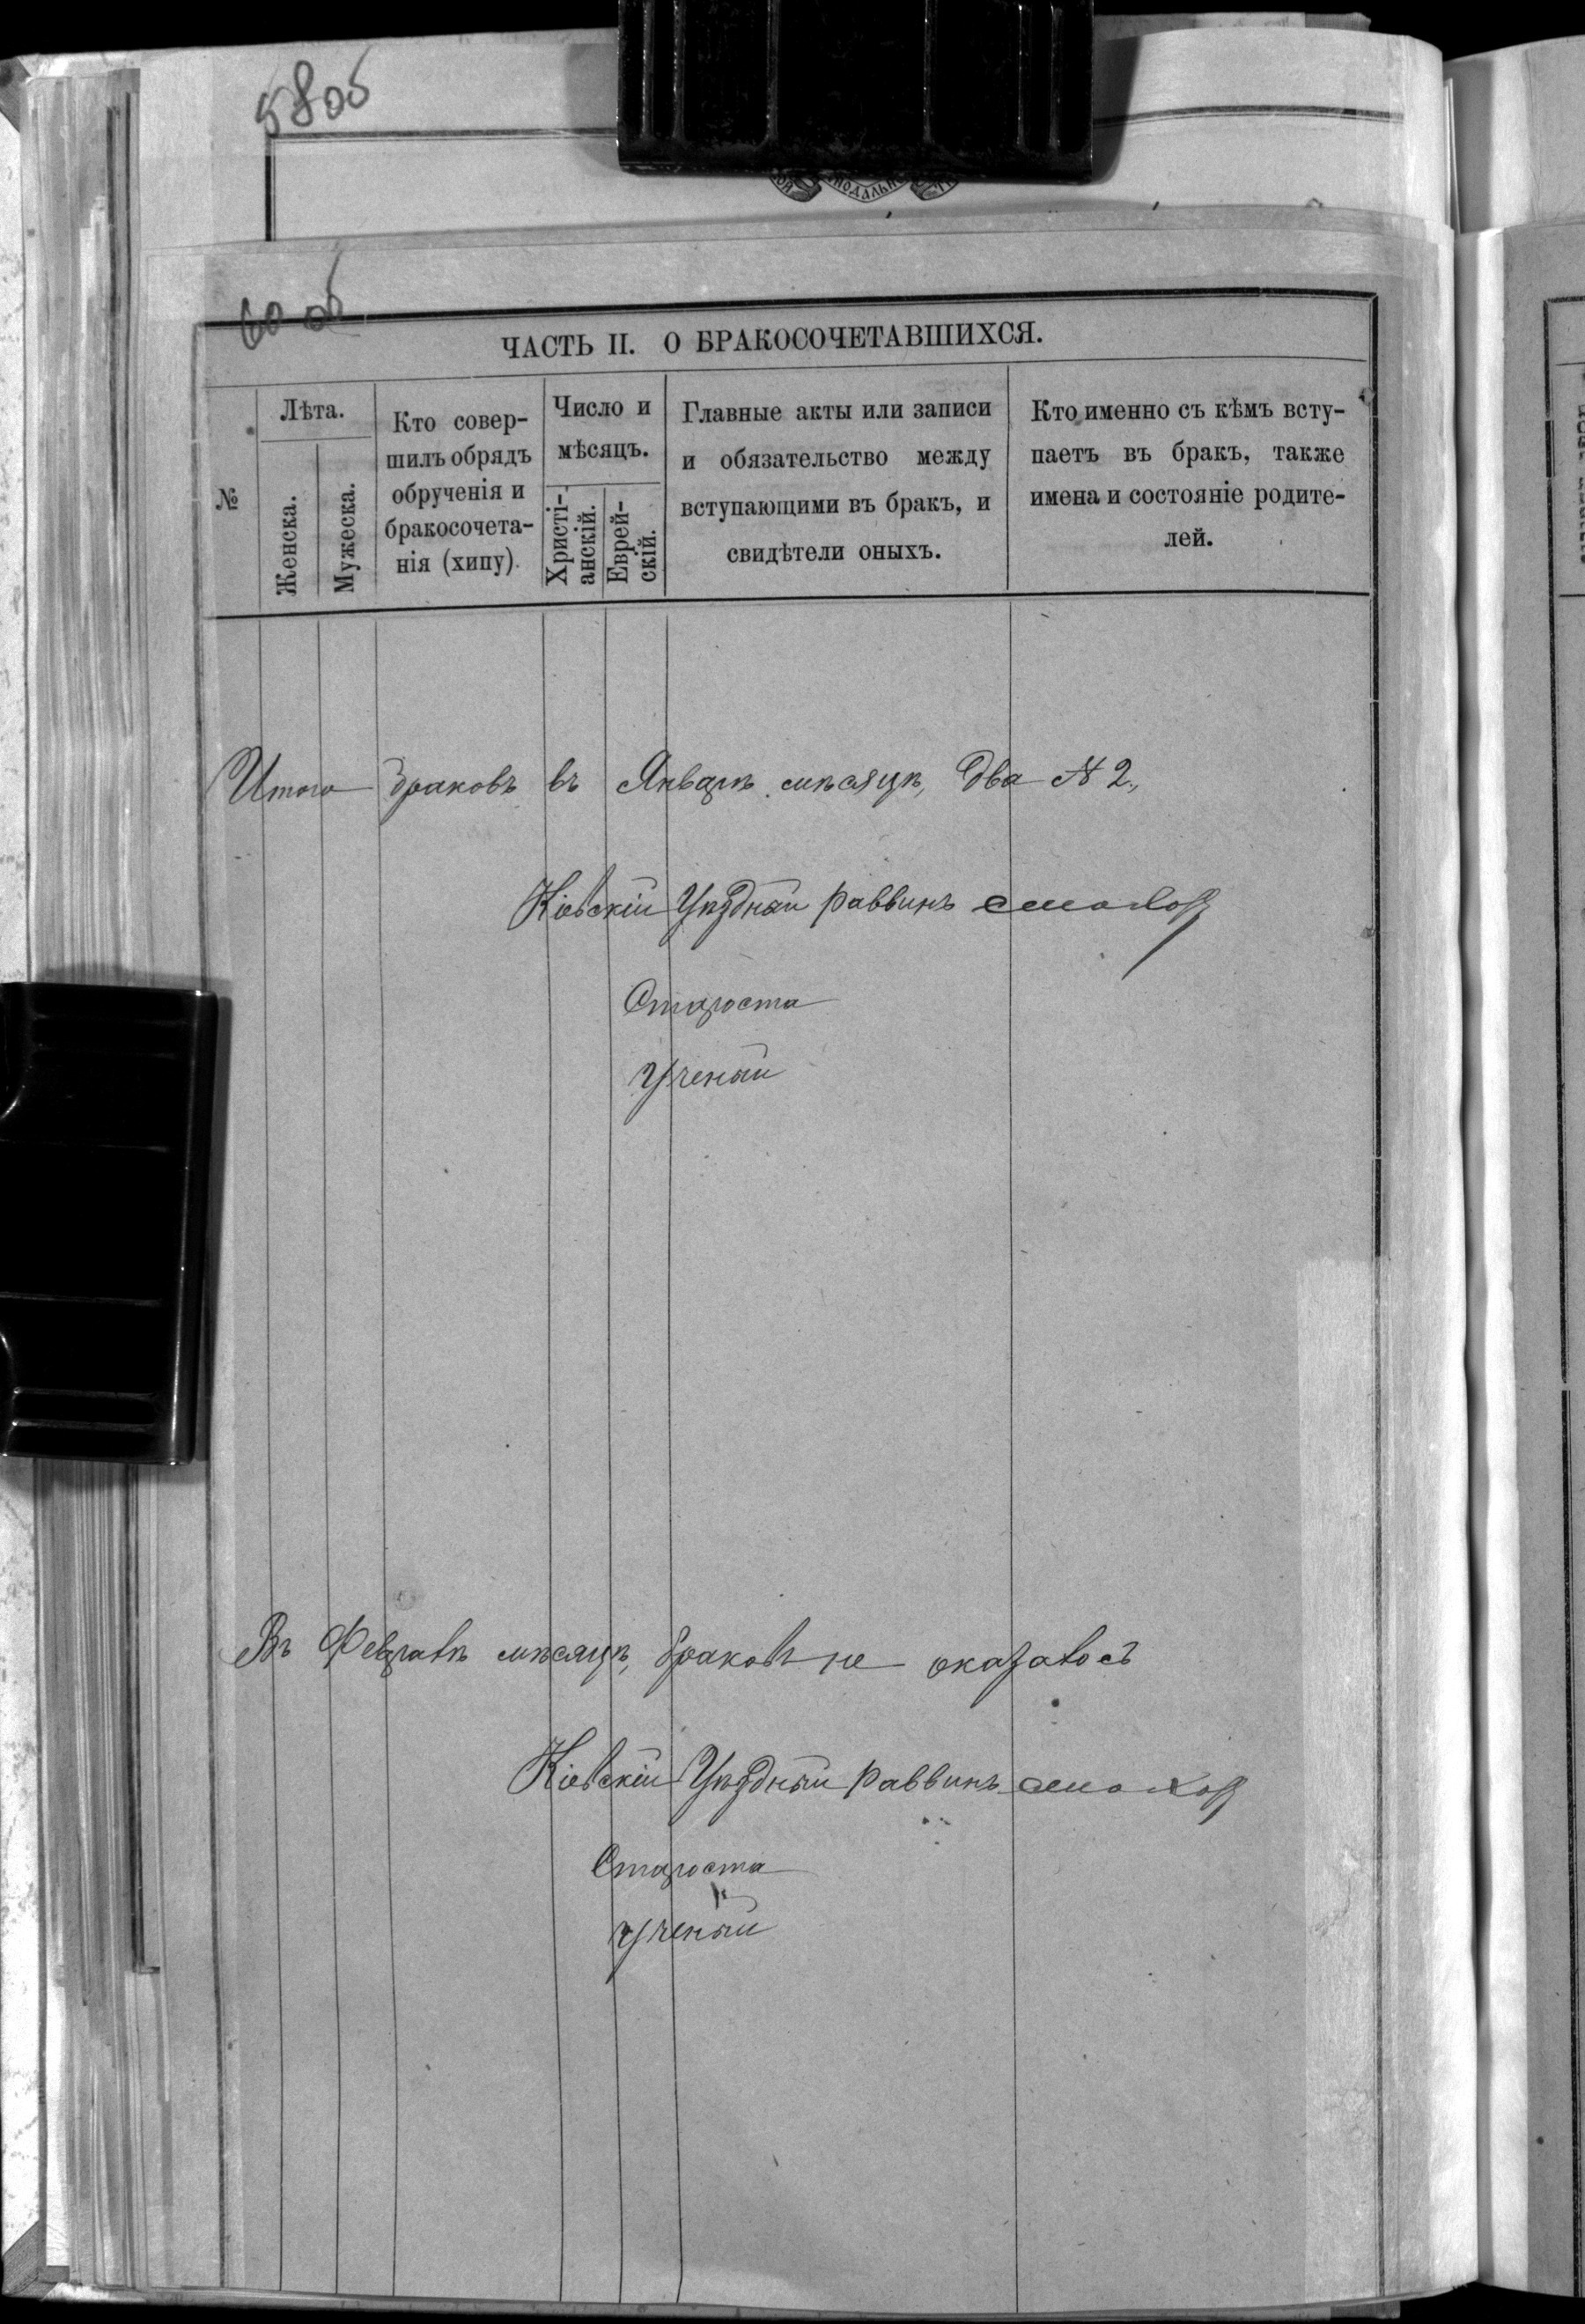 58об
60 об
ЧАСТЬ II. О БРАКОСОЧЕТАВШИХСЯ.
№
Лѣта.
Женска.
Мужеска.
Кто совер-
шилъ обрядъ
обрученія и
бракосочета-
нія (хипу).
Число и
мѣсяцъ.
Христі-
анскій.
Еврей-
скій.
Главные акты или записи
и обязательство между
вступающими въ бракъ, и
свидѣтели оныхъ.
Кто именно съ кѣмъ всту-
паетъ въ бракъ, также
имена и состояніе родите-
лей.
Итого браковъ въ Январѣ мѣсяцѣ, два № 2.,
Кіевскій Уѣздный раввинъ
Староста
Ученый
Въ Февралѣ мѣсяцѣ, браковъ не оказалось
Кіевскій Уѣздный раввинъ
Староста
Ученый